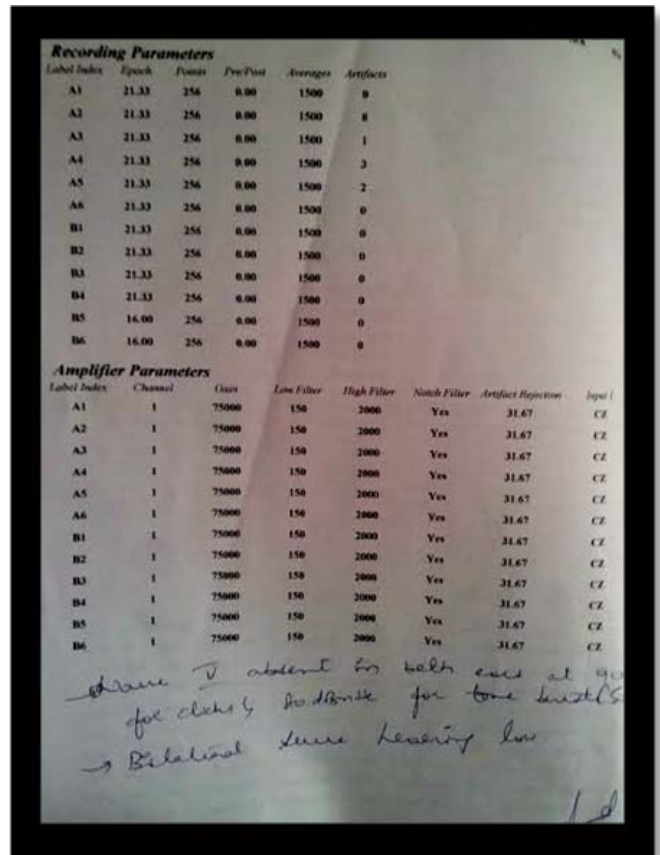 Recording Parameters
Label Index Epoch Points Pre/Post Averages Artifacts
A1 21.33 256 0.00 1500 0
A2 21.33 256 0.00 1500 8
A3 21.33 256 0.00 1500 1
A4 21.33 256 0.00 1500 3
A5 21.33 256 0.00 1500 2
A6 21.33 256 0.00 1500 0
B1 21.33 256 0.00 1500 0
B2 21.33 256 0.00 1500 0
B3 21.33 256 0.00 1500 0
B4 21.33 256 0.00 1500 0
B5 16.00 256 0.00 1500 0
B6 16.00 256 0.00 1500 0
Amplifier Parameters
Label Index Channel Gain Low Filter High Filter Notch Filter Artifact Rejection Input
A1 1 75000 150 2000 Yes 31.67 CZ
A2 1 75000 150 2000 Yes 31.67 CZ
A3 1 75000 150 2000 Yes 31.67 CZ
A4 1 75000 150 2000 Yes 31.67 CZ
A5 1 75000 150 2000 Yes 31.67 CZ
A6 1 75000 150 2000 Yes 31.67 CZ
B1 1 75000 150 2000 Yes 31.67 CZ
B2 1 75000 150 2000 Yes 31.67 CZ
B3 1 75000 150 2000 Yes 31.67 CZ
B4 1 75000 150 2000 Yes 31.67 CZ
B5 1 75000 150 2000 Yes 31.67 CZ
B6 1 75000 150 2000 Yes 31.67 CZ
V absent in both ears at
for clicks for tone
→ Bilateral hearing